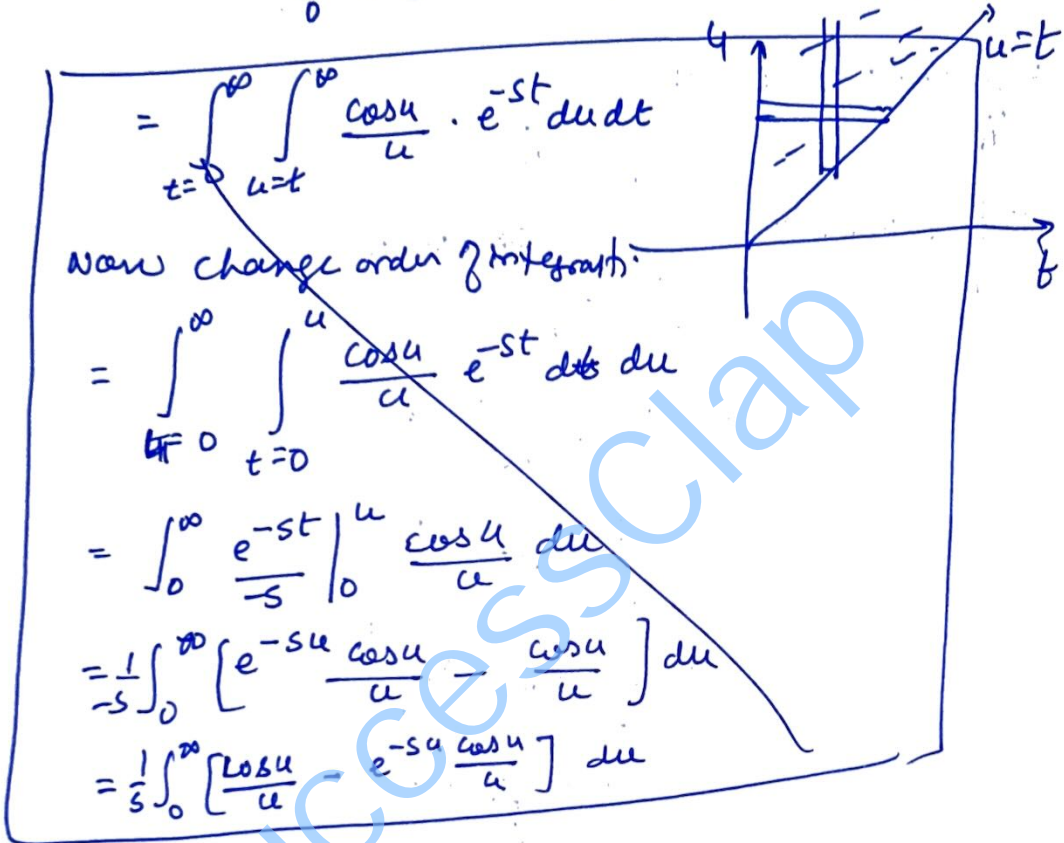 0
= ∫_{t=0}^{∞} ∫_{u=t}^{∞} cosu/u . e^{-st} du dt
4 u=t
t
Now change order of integrath.
= ∫_{u=0}^{∞} ∫_{t=0}^{u} cosu/u e^{-st} dt du
= ∫_0^∞ e^{-st}/-s |_0^u cosu/u du
= 1/-s ∫_0^∞ [e^{-su} cosu/u - cosu/u] du
= 1/s ∫_0^∞ [cosu/u - e^{-su} cosu/u] du
ccessClap